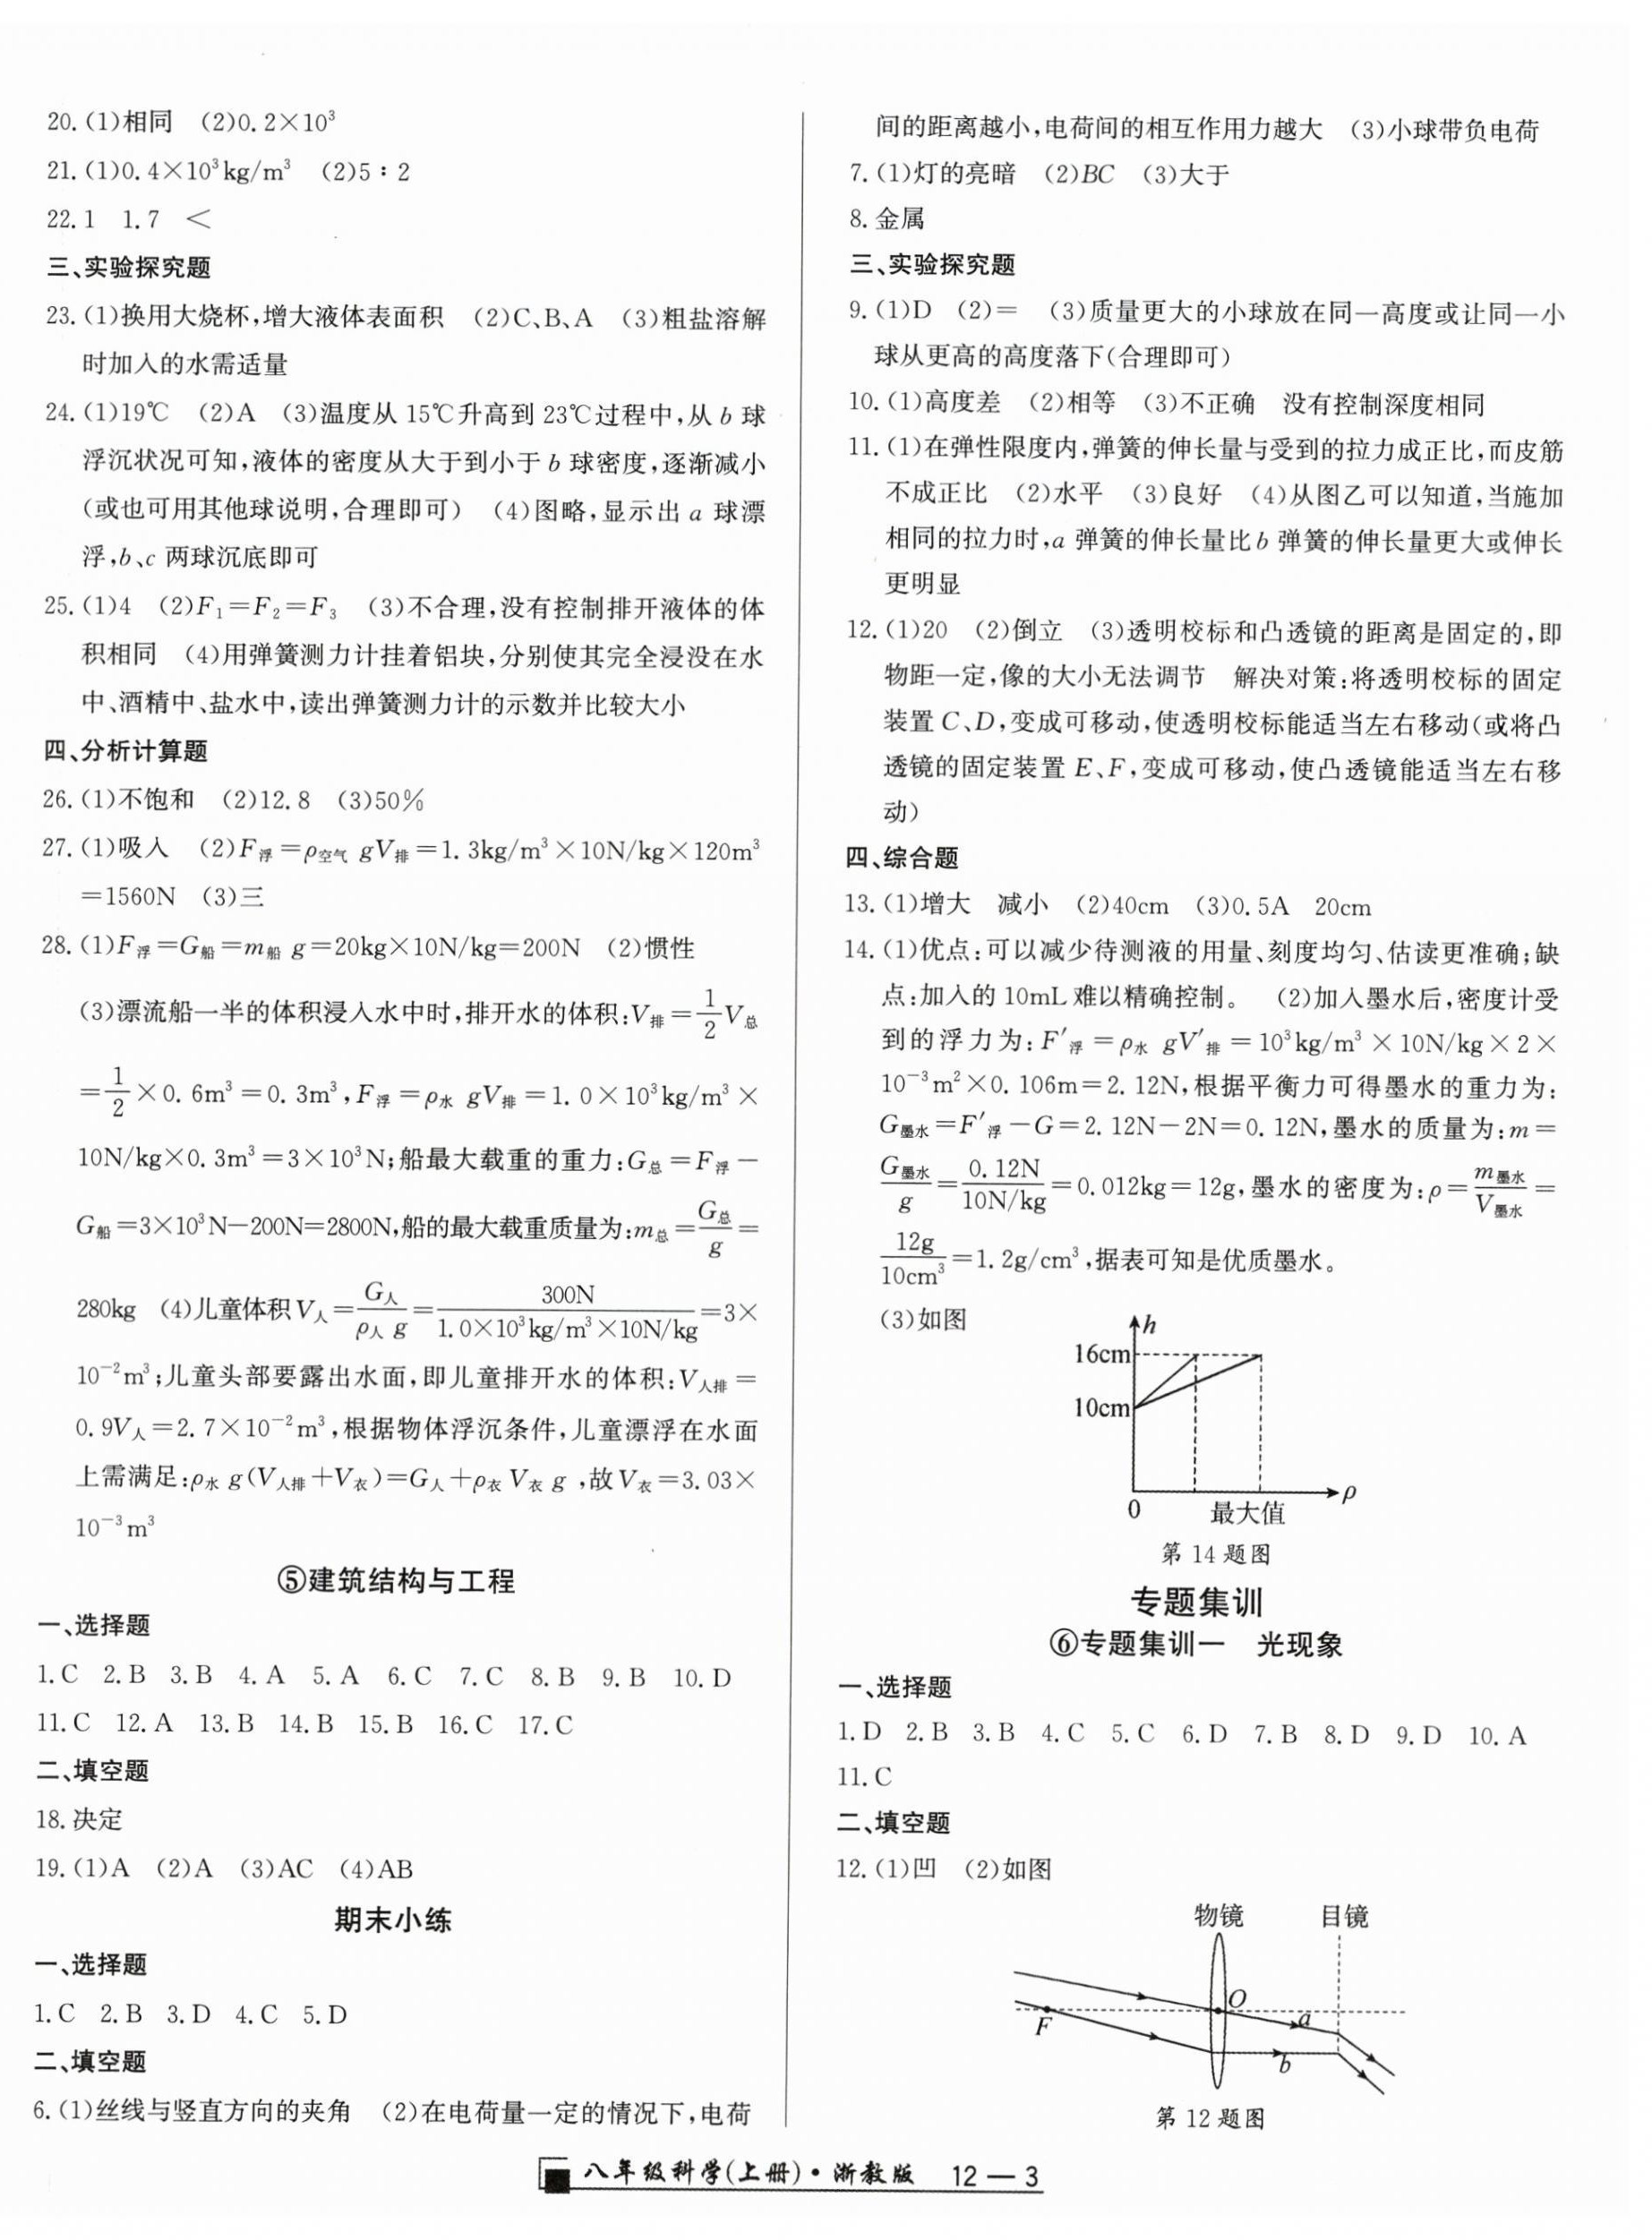 20.(1)相同　(2)0.2×10³
21.(1)0.4×10³kg/m³　(2)5∶2
22.1　1.7　<
三、实验探究题
23.(1)换用大烧杯,增大液体表面积　(2)C、B、A　(3)粗盐溶解
时加入的水需适量
24.(1)19℃　(2)A　(3)温度从15℃升高到23℃过程中,从b球
浮沉状况可知,液体的密度从大于到小于b球密度,逐渐减小
(或也可用其他球说明,合理即可)　(4)图略,显示出a球漂
浮,b、c两球沉底即可
25.(1)4　(2)F₁=F₂=F₃　(3)不合理,没有控制排开液体的体
积相同　(4)用弹簧测力计挂着铝块,分别使其完全浸没在水
中、酒精中、盐水中,读出弹簧测力计的示数并比较大小
四、分析计算题
26.(1)不饱和　(2)12.8　(3)50%
27.(1)吸入　(2)F浮=ρ空气gV排=1.3kg/m³×10N/kg×120m³
=1560N　(3)三
28.(1)F浮=G船=m船g=20kg×10N/kg=200N　(2)惯性
(3)漂流船一半的体积浸入水中时,排开水的体积:V排=1/2V总
=1/2×0.6m³=0.3m³,F浮=ρ水gV排=1.0×10³kg/m³×
10N/kg×0.3m³=3×10³N;船最大载重的重力:G总=F浮-
G船=3×10³N-200N=2800N,船的最大载重质量为:m总=G总/g=
280kg　(4)儿童体积V人=G人/ρ人g=300N/1.0×10³kg/m³×10N/kg=3×
10⁻²m³;儿童头部要露出水面,即儿童排开水的体积:V人排=
0.9V人=2.7×10⁻²m³,根据物体浮沉条件,儿童漂浮在水面
上需满足:ρ水g(V人排+V衣)=G人+ρ衣V衣g,故V衣=3.03×
10⁻³m³
⑤建筑结构与工程
一、选择题
1.C　2.B　3.B　4.A　5.A　6.C　7.C　8.B　9.B　10.D
11.C　12.A　13.B　14.B　15.B　16.C　17.C
二、填空题
18.决定
19.(1)A　(2)A　(3)AC　(4)AB
期末小练
一、选择题
1.C　2.B　3.D　4.C　5.D
二、填空题
6.(1)丝线与竖直方向的夹角　(2)在电荷量一定的情况下,电荷
间的距离越小,电荷间的相互作用力越大　(3)小球带负电荷
7.(1)灯的亮暗　(2)BC　(3)大于
8.金属
三、实验探究题
9.(1)D　(2)=　(3)质量更大的小球放在同一高度或让同一小
球从更高的高度落下(合理即可)
10.(1)高度差　(2)相等　(3)不正确　没有控制深度相同
11.(1)在弹性限度内,弹簧的伸长量与受到的拉力成正比,而皮筋
不成正比　(2)水平　(3)良好　(4)从图乙可以知道,当施加
相同的拉力时,a弹簧的伸长量比b弹簧的伸长量更大或伸长
更明显
12.(1)20　(2)倒立　(3)透明校标和凸透镜的距离是固定的,即
物距一定,像的大小无法调节　解决对策:将透明校标的固定
装置C、D,变成可移动,使透明校标能适当左右移动(或将凸
透镜的固定装置E、F,变成可移动,使凸透镜能适当左右移
动)
四、综合题
13.(1)增大　减小　(2)40cm　(3)0.5A　20cm
14.(1)优点:可以减少待测液的用量、刻度均匀、估读更准确;缺
点:加入的10mL难以精确控制。　(2)加入墨水后,密度计受
到的浮力为:F′浮=ρ水gV′排=10³kg/m³×10N/kg×2×
10⁻³m²×0.106m=2.12N,根据平衡力可得墨水的重力为:
G墨水=F′浮-G=2.12N-2N=0.12N,墨水的质量为:m=
G墨水/g=0.12N/10N/kg=0.012kg=12g,墨水的密度为:ρ=m墨水/V墨水=
12g/10cm³=1.2g/cm³,据表可知是优质墨水。
(3)如图
h
16cm
10cm
0　最大值　ρ
第14题图
专题集训
⑥专题集训一　光现象
一、选择题
1.D　2.B　3.B　4.C　5.C　6.D　7.B　8.D　9.D　10.A
11.C
二、填空题
12.(1)凹　(2)如图
物镜　目镜
O
F　a
b
第12题图
八年级科学(上册)·浙教版　12—3